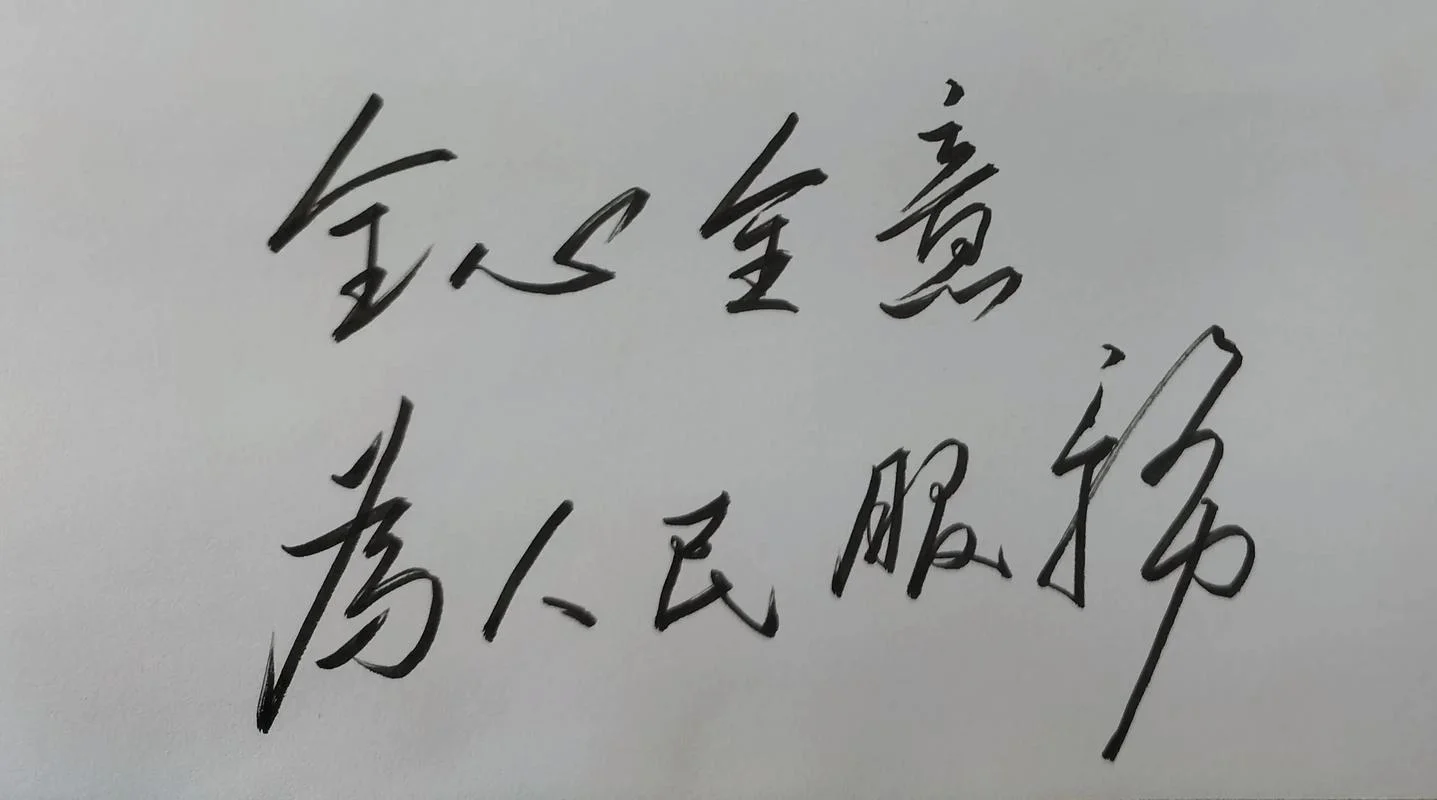 全心全意
為人民服務